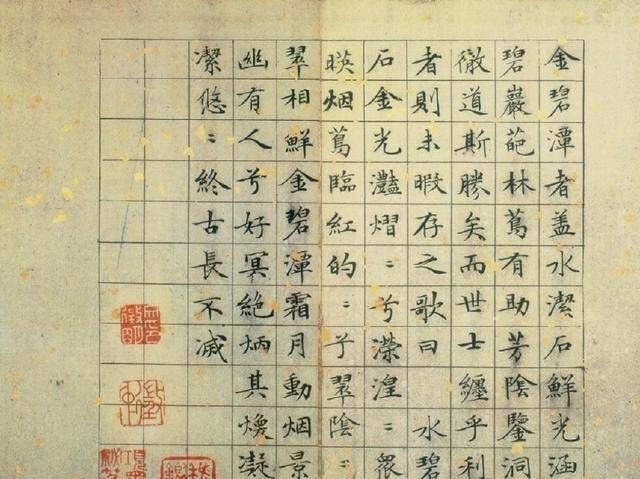 金碧潭者盖水潔石鮮光涵
碧巖葩林蔦有助芳陰鑒洞
徹道斯勝矣而世士纏乎利
者則未暇存之歌曰 水碧
石金光灩熠〻兮濚湟〻衆
暎烟蔦臨紅的〻兮翠陰〻
翠相鮮金碧潭霜月動烟景
幽有人兮好冥絶炳其煥凝
潔悠〻終古長不滅